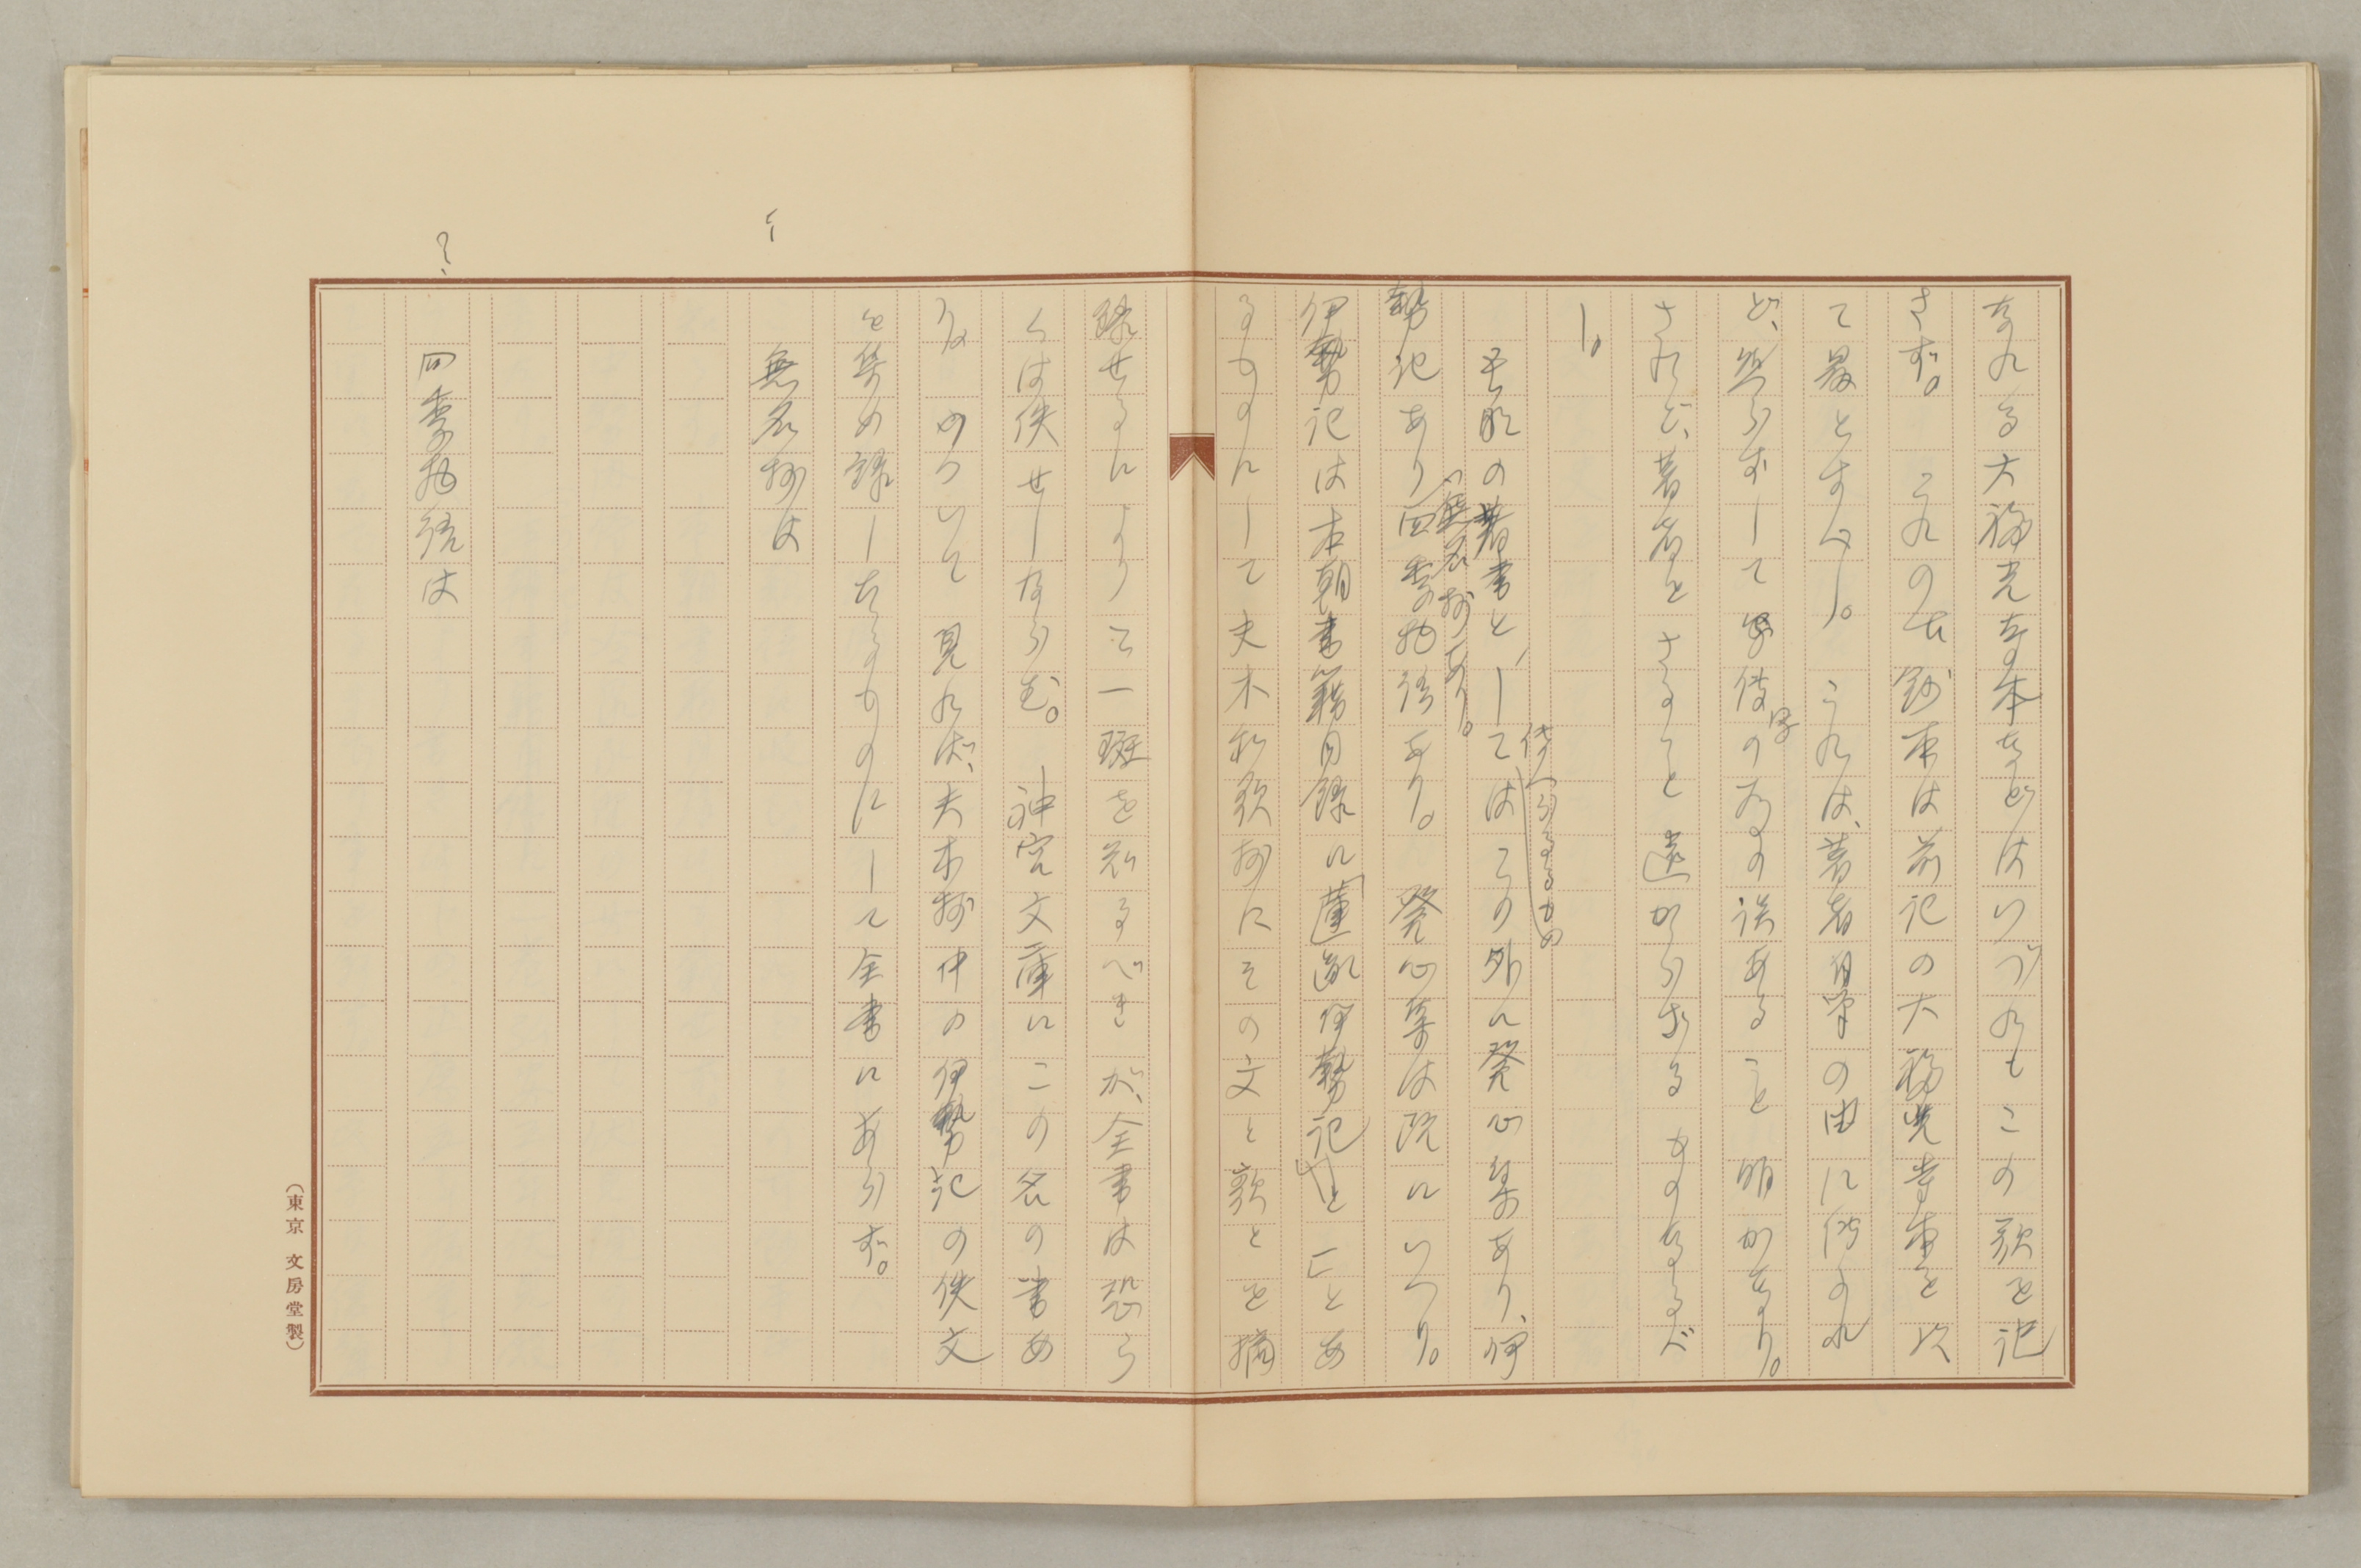 なれる大福光寺本などはいづれもこの歌を記
さず。これの古鈔本は前記の大福光寺本を以
て最とすべし。これは、著者自筆の由に傳ふれ
ど、然らずして字傳寫の際の誤あること明かなり。
されど、著者をさること遠からざるものなるべ
し。
長明の著書として傳へらるるものはこの外に發心集あり、伊
勢記あり四季物語あり。無名抄あり。發心集は既にいへり。
伊勢記は本朝書籍目録に「蓮胤伊勢記と」とあ
るものにして夫木和歌抄にその文と歌とを摘
録せるによりて一斑を知るべきが、全書は恐ら
くは佚せしならむ。神宮文庫にこの名の書あ
り。かつ 見れば、夫木抄中の伊勢記の佚文
を集め録したるものにして全書にあらず。
無名抄は
四季物語は
(東京 文房堂製)